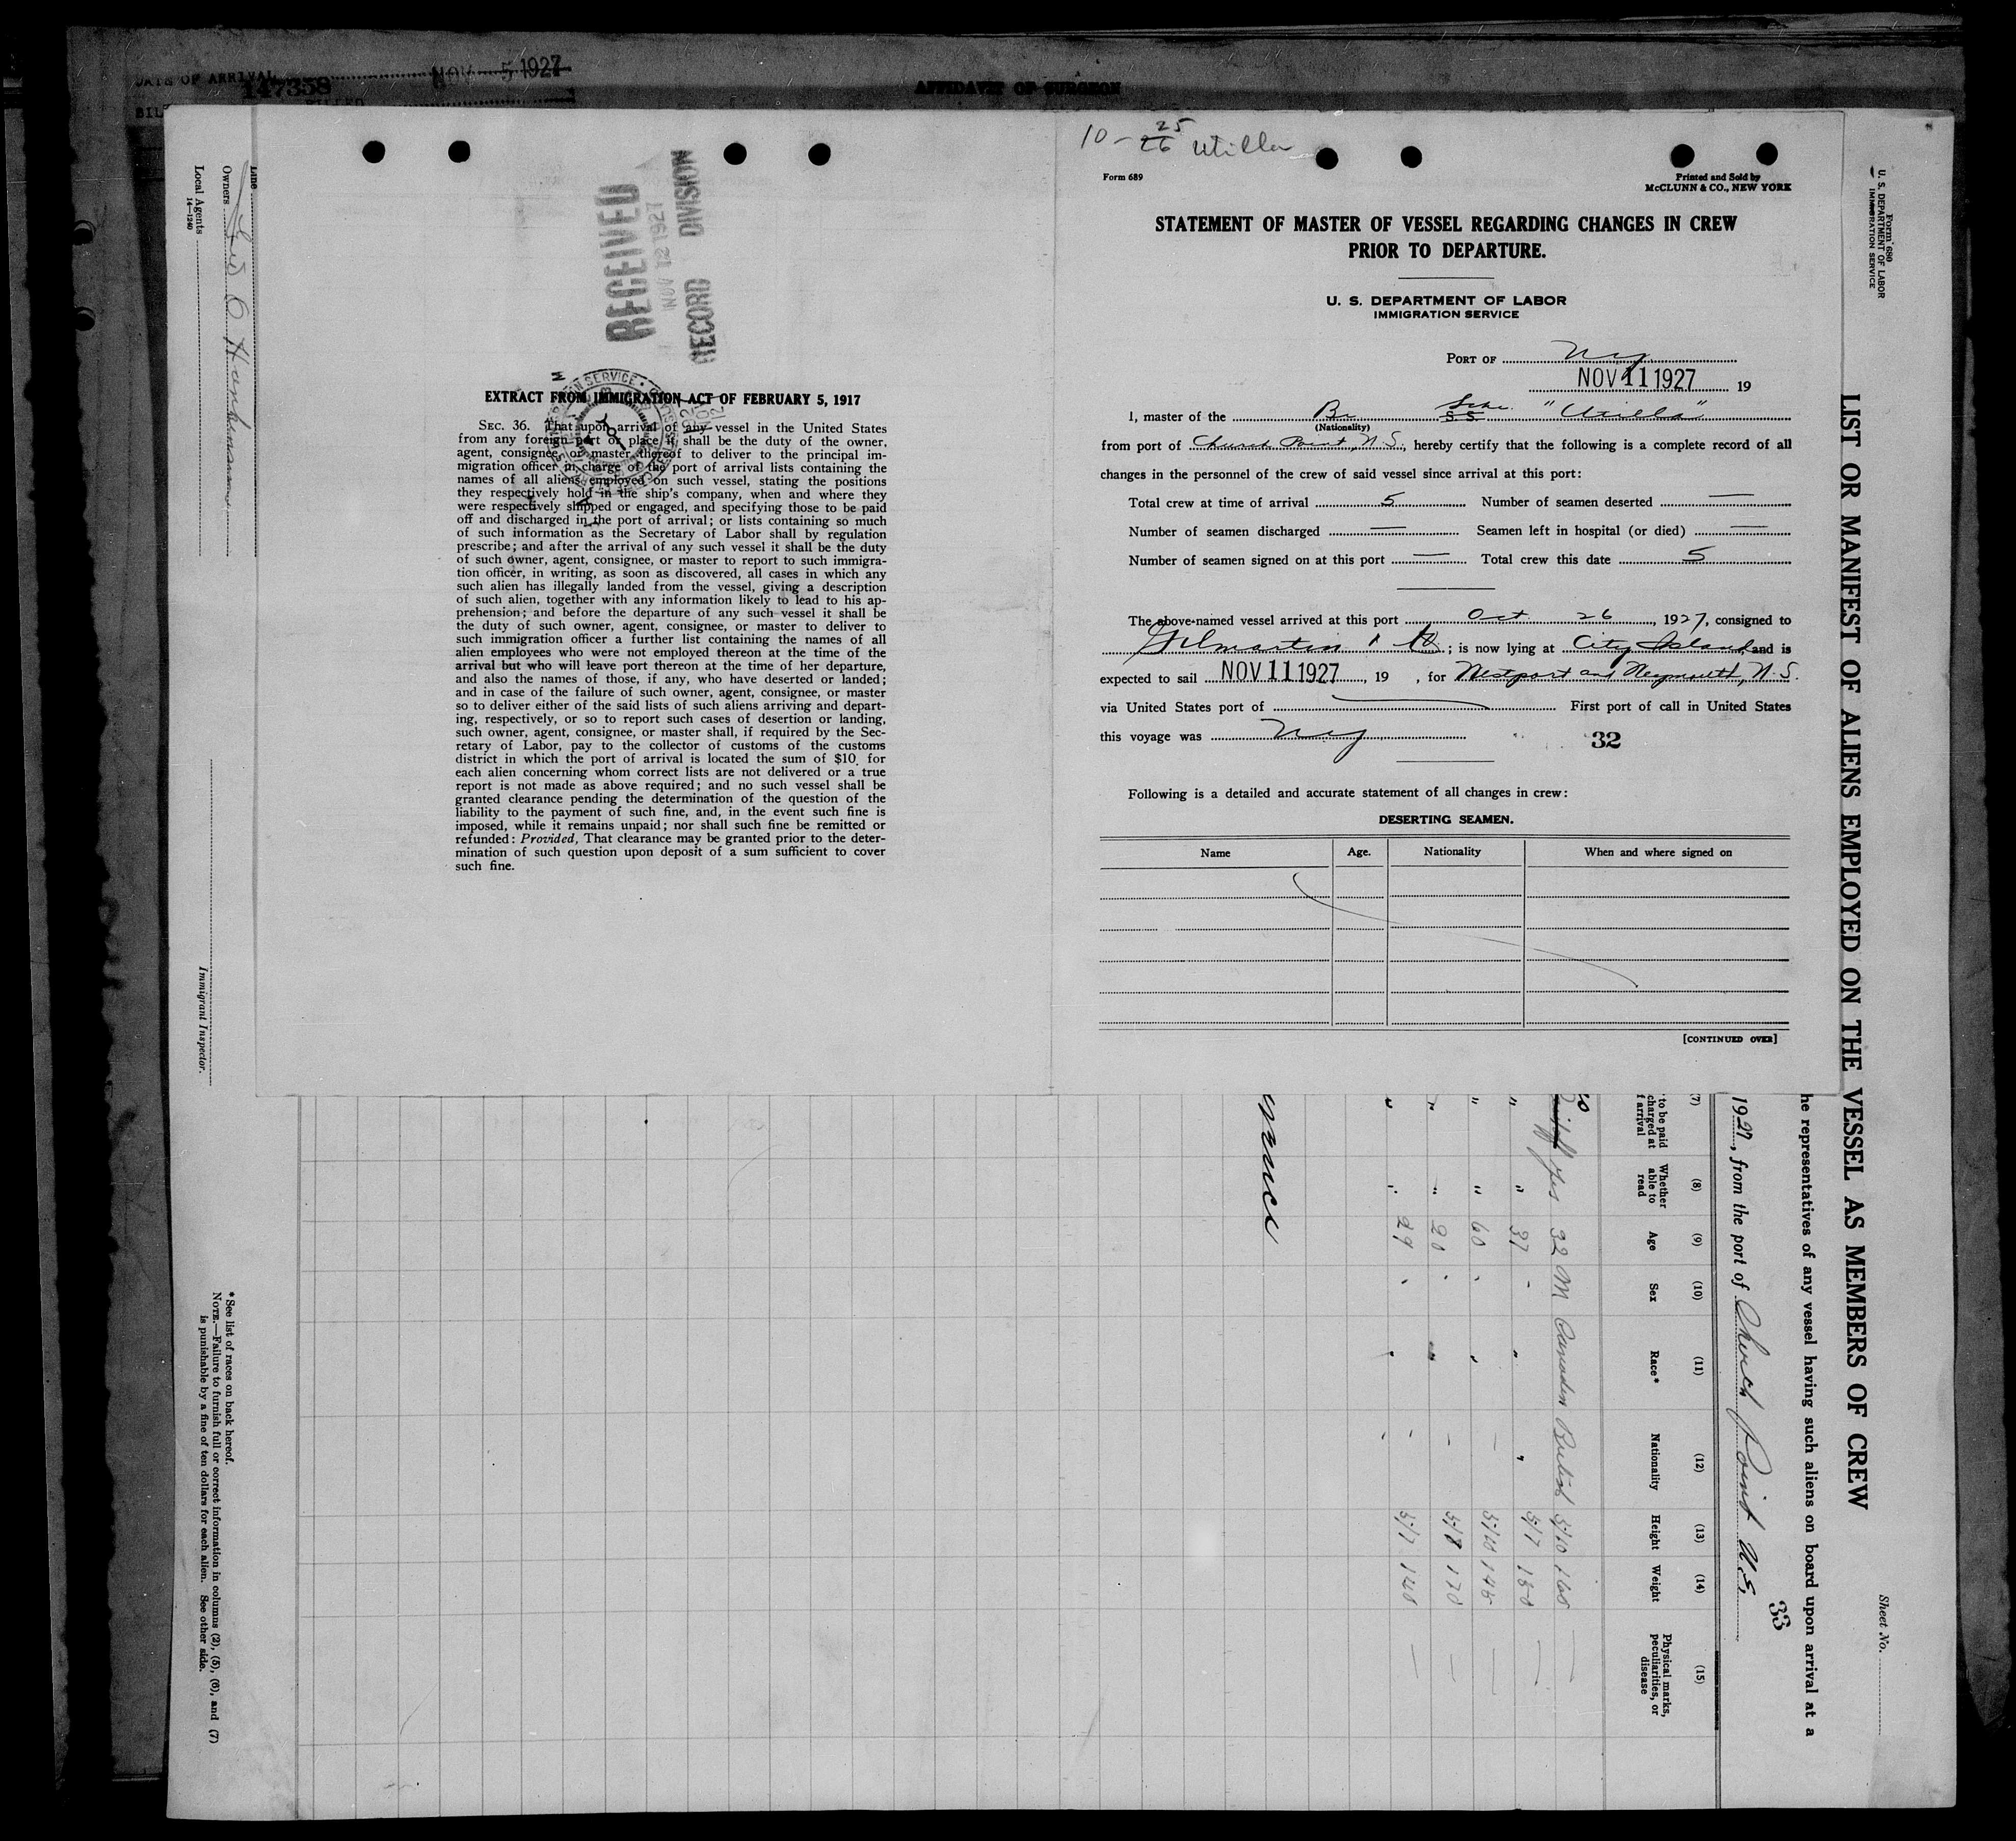 DATE OF ARRIVAL NOV 5 1927
147358
AFFIDAVIT OF SURGEON
Owners
Local Agents
14—1240
Immigrant Inspector.
* See list of races on back hereof.
NOTE.—Failure to furnish full or correct information in columns (2), (5), (6), and (7)
is punishable by a fine of ten dollars for each alien. See other side.
RECEIVED
NOV 12 1927
RECORD DIVISION
EXTRACT FROM IMMIGRATION ACT OF FEBRUARY 5, 1917
SEC. 36. That upon arrival of any vessel in the United States
from any foreign port or place it shall be the duty of the owner,
agent, consignee, or master thereof to deliver to the principal im-
migration officer in charge of the port of arrival lists containing the
names of all aliens employed on such vessel, stating the positions
they respectively hold in the ship's company, when and where they
were respectively shipped or engaged, and specifying those to be paid
off and discharged in the port of arrival; or lists containing so much
of such information as the Secretary of Labor shall by regulation
prescribe; and after the arrival of any such vessel it shall be the duty
of such owner, agent, consignee, or master to report to such immigra-
tion officer, in writing, as soon as discovered, all cases in which any
such alien has illegally landed from the vessel, giving a description
of such alien, together with any information likely to lead to his ap-
prehension; and before the departure of any such vessel it shall be
the duty of such owner, agent, consignee, or master to deliver to
such immigration officer a further list containing the names of all
alien employees who were not employed thereon at the time of the
arrival but who will leave port thereon at the time of her departure,
and also the names of those, if any, who have deserted or landed;
and in case of the failure of such owner, agent, consignee, or master
so to deliver either of the said lists of such aliens arriving and depart-
ing, respectively, or so to report such cases of desertion or landing,
such owner, agent, consignee, or master shall, if required by the Sec-
retary of Labor, pay to the collector of customs of the customs
district in which the port of arrival is located the sum of $10 for
each alien concerning whom correct lists are not delivered or a true
report is not made as above required; and no such vessel shall be
granted clearance pending the determination of the question of the
liability to the payment of such fine, and, in the event such fine is
imposed, while it remains unpaid; nor shall such fine be remitted or
refunded: Provided, That clearance may be granted prior to the deter-
mination of such question upon deposit of a sum sufficient to cover
such fine.
10-25
26 Utilla
Form 689
Printed and Sold by
McCLUNN & CO., NEW YORK
STATEMENT OF MASTER OF VESSEL REGARDING CHANGES IN CREW
PRIOR TO DEPARTURE.
U. S. DEPARTMENT OF LABOR
IMMIGRATION SERVICE
PORT OF NY
NOV 11 1927 19
I, master of the Br Schr. S S "Utilla"
(Nationality)
from port of Church Point, N.S., hereby certify that the following is a complete record of all
changes in the personnel of the crew of said vessel since arrival at this port:
Total crew at time of arrival 5 Number of seamen deserted —
Number of seamen discharged — Seamen left in hospital (or died) —
Number of seamen signed on at this port — Total crew this date 5
The above-named vessel arrived at this port Oct. 26, 1927, consigned to
Gilmartin & Co; is now lying at City Island and is
expected to sail NOV 11 1927, 19 , for Westport and Weymouth, N.S.
via United States port of — First port of call in United States
this voyage was NY
32
Following is a detailed and accurate statement of all changes in crew:
DESERTING SEAMEN.
Name Age. Nationality When and where signed on
[CONTINUED OVER]
Form 680
U. S. DEPARTMENT OF LABOR
IMMIGRATION SERVICE
Sheet No.
LIST OR MANIFEST OF ALIENS EMPLOYED ON THE VESSEL AS MEMBERS OF CREW
he representatives of any vessel having such aliens on board upon arrival at a
33
1927, from the port of Church Point N.S.
(7) (8) (9) (10) (11) (12) (13) (14) (15)
to be paid
charged at
f arrival
Whether
able to
read
Age
Sex
Race*
Nationality
Height
Weight
Physical marks,
peculiarities, or
disease
yes 32 M Canadian British 5/10 165 —
" " 37 " " " 5/7 180 —
" " 60 " " — 5/10 145 —
" " 20 " " — 5/8 170 —
" " 29 " " — 5/7 140 —